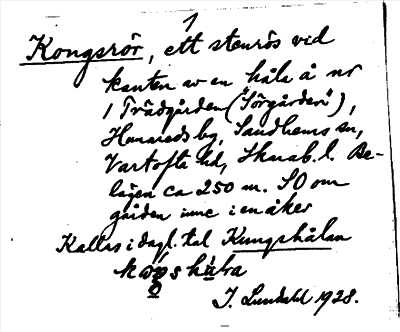 1
Kongsrör, ett stenrös vid
kanten av en håla å nr
1 Trädgården ("Sörgården"),
Hanareds by, Sandhems sn,
Vartofta hd, Skarab. l. Be-
lägen ca 250 m. SO om
gården inne i en åker
Kallas i dagl. tal Kungshålan
J. Lundahl 1928.